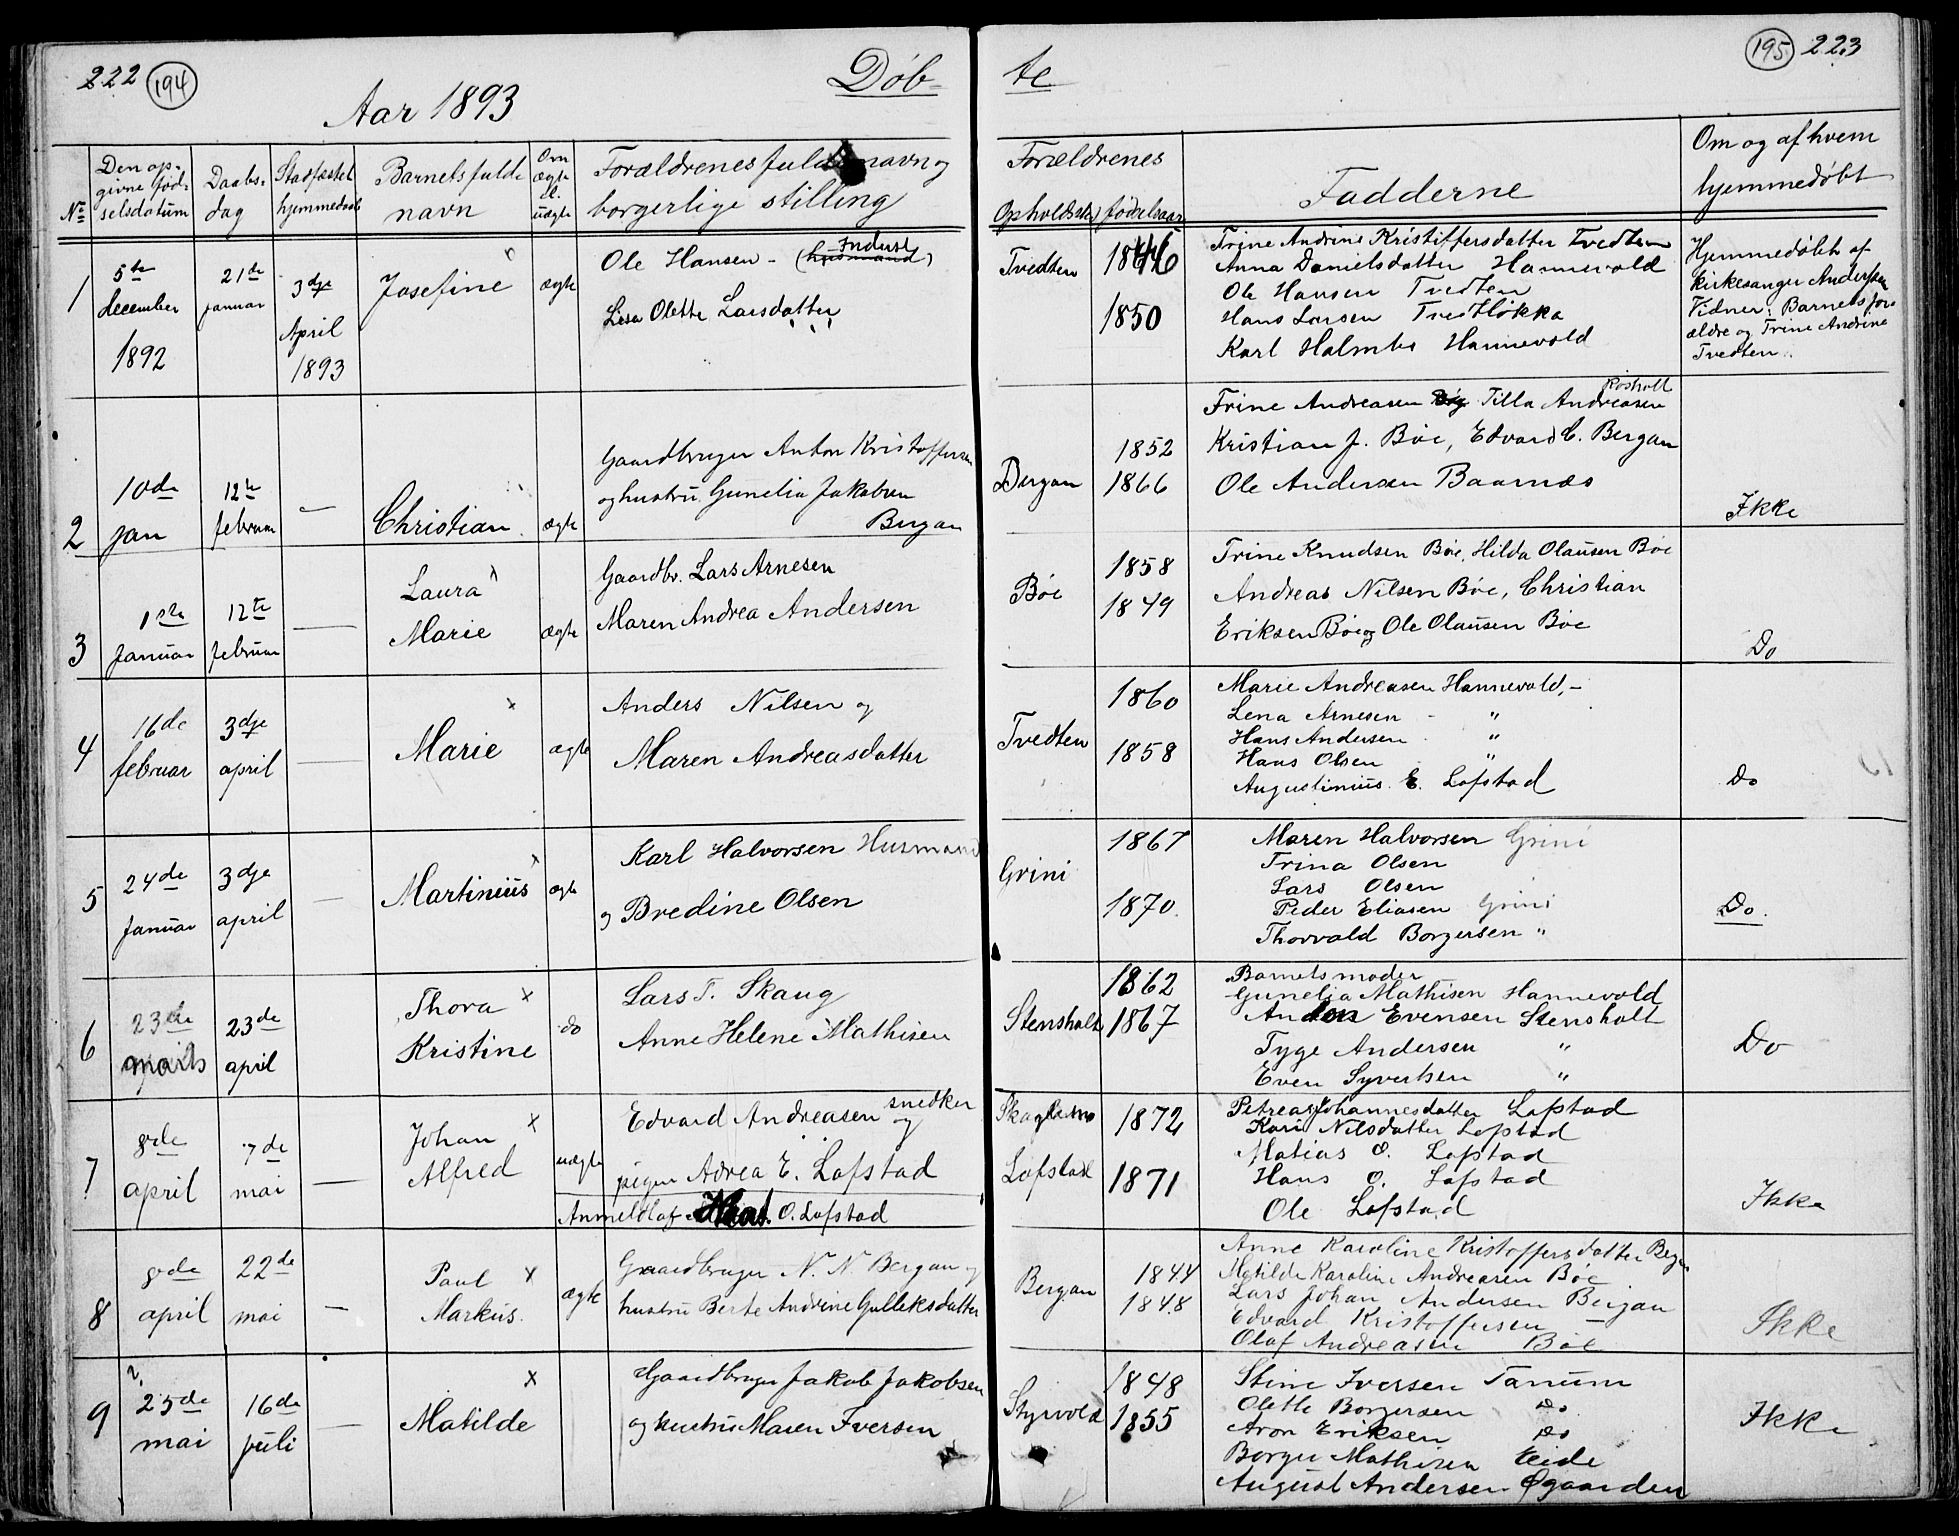 222 (194)
Døb-
Aar 1893
No Den op-givne fød-selsdatum Daabs-dag Stadfæstet hjemmedaab Barnets fulde navn Om ægte el. uægte Forældrenes fulde navn og borgerlige stilling
1 5te december 1892 21de januar 3dje April 1893 Josefine ægte
Ole Hansen - (husmand) Inderst
Lisa Olette Larsdatter
2 10de jan 12te februar — Christian ægte
Gaardbruger Anton Kristoffersen
og hustru Gunelia Jakobsen
Bergan
3 1ste Januar 12te februar — Laura Marie ægte
Gaardbr. Lars Arnesen
Maren Andrea Andersen
4 16de februar 3dje april — Marie ægte
Anders Nilsen og
Maren Andreasdatter
5 24de Januar 3dje april — Martinius ægte
Karl Halvorsen Husmand
og Bredine Olsen
6 23de marts 23de april Thora Kristine do
Lars T. Skaug
Anne Helene Mathisen
7 8de april 7de mai — Johan Alfred uægte
Edvard Andreasen snedker og
pigen Adrea E. Lofstad
Anmeldt af O. Lofstad
8 8de april 22de mai — Paul Markus. ægte
Gaardbruger N. N Bergan og
hustru Berte Andrine Gulleksdatter
9 25de mai 16de juli — Matilde
Gaardbruger Jakob Jakobsen
og hustru Maren Iversen
(195) 223
te
Forældrenes
Opholdssted fødselsaar Fadderne Om og af hvem hjemmedøbt
Tvedten 1846 1850
Trine Andrine Kristiffersdatter Tvedten
Anna Danielsdatter Hannevold
Ole Hansen Tvedten
Hans Larsen Tvedtløkka
Karl Halmbs Hannevold
Hjemmedøbt af
kirkesanger Andersen
Vidner: Barnets for-
ældre og Trine Andrine
Tvedten.
Bergan 1852 1866
Rosholt
Trine Andreasen Tilla Andreasen
Kristian J. Böe, Edvard C. Bergan
Ole Andersen Baarnæs
Ikke
Böe 1858 1849
Trine Knudsen Böe, Hilda Olausen Böe
Andreas Nilsen Böe, Christian
Eriksen Böe og Ole Olausen Böe
Do
Tvedten 1860 1858
Marie Andreasen Hannevold,-
Lena Arnesen - "
Hans Andersen "
Hans Olsen "
Augustinius E. Lofstad
Do
Grini 1867 1870.
Maren Halvorsen Grini
Trina Olsen
Lars Olsen
Peder Eliasen Grini
Thorvald Borgersen "
Do.
Stensholt 1862 1867
Barnets moder
Gunelia Mathisen Hannevold
Anton Evensen Stensholt
Tyge Andersen "
Even Syvertsen "
Do
Lofstad 1872 1871
Petrea Johannesdatter Lofstad
Kari Nilsdatter Lofstad
Matias O. Lofstad
Hans O. Lofstad
Ole Lofstad
Ikke
Bergan 1844 1848
Anne Karoline Kristoffersdatter Bergan
Matilde Karoline Andreasen Böe
Lars Johan Andersen Bergan
Edvard Kristoffersen —
Olaf Andreasen Böe
Ikke
Styrvold 1848 1855
Stine Iversen Tanum
Olette Borgersen Do
Aron Eriksen Do
Borger Mathisen Eide
August Andersen Øgaarden
Ikke